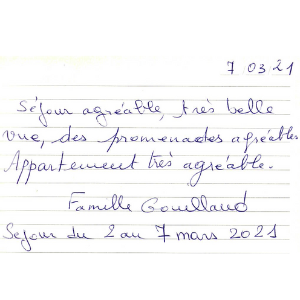 7 03 21
Séjour agréable, très belle
vue, des promenades agréables
Appartement très agréable.
Famille Gouilland
Séjour du 2 au 7 mars 2021